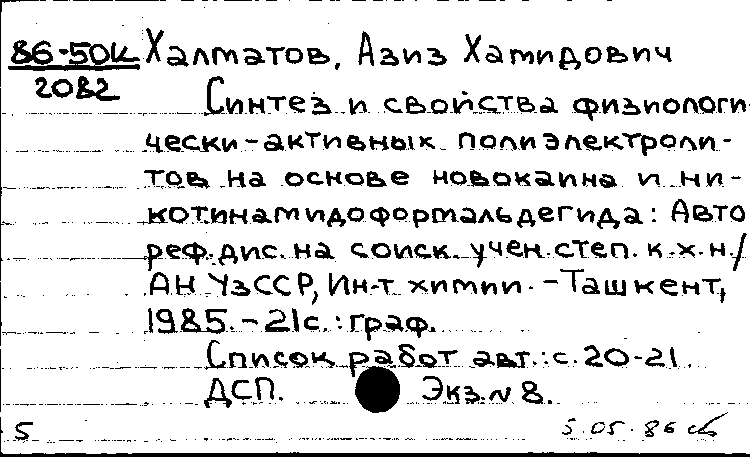 86-50К Халматов, Азиз Хамидович
2082
Синтез и свойства физиологи-
чески-активных полиэлектроли-
тов на основе новокаина и ни-
котинамидоформальдегида: Авто
реф.дис. на соиск. учен.степ. к.х.н./
АН УзССР, Ин-т химии. - Ташкент,
1985. - 21с.:граф.
Список работ авт.: с. 20-21.
ДСП. Экз. № 8.
5 5.05.86